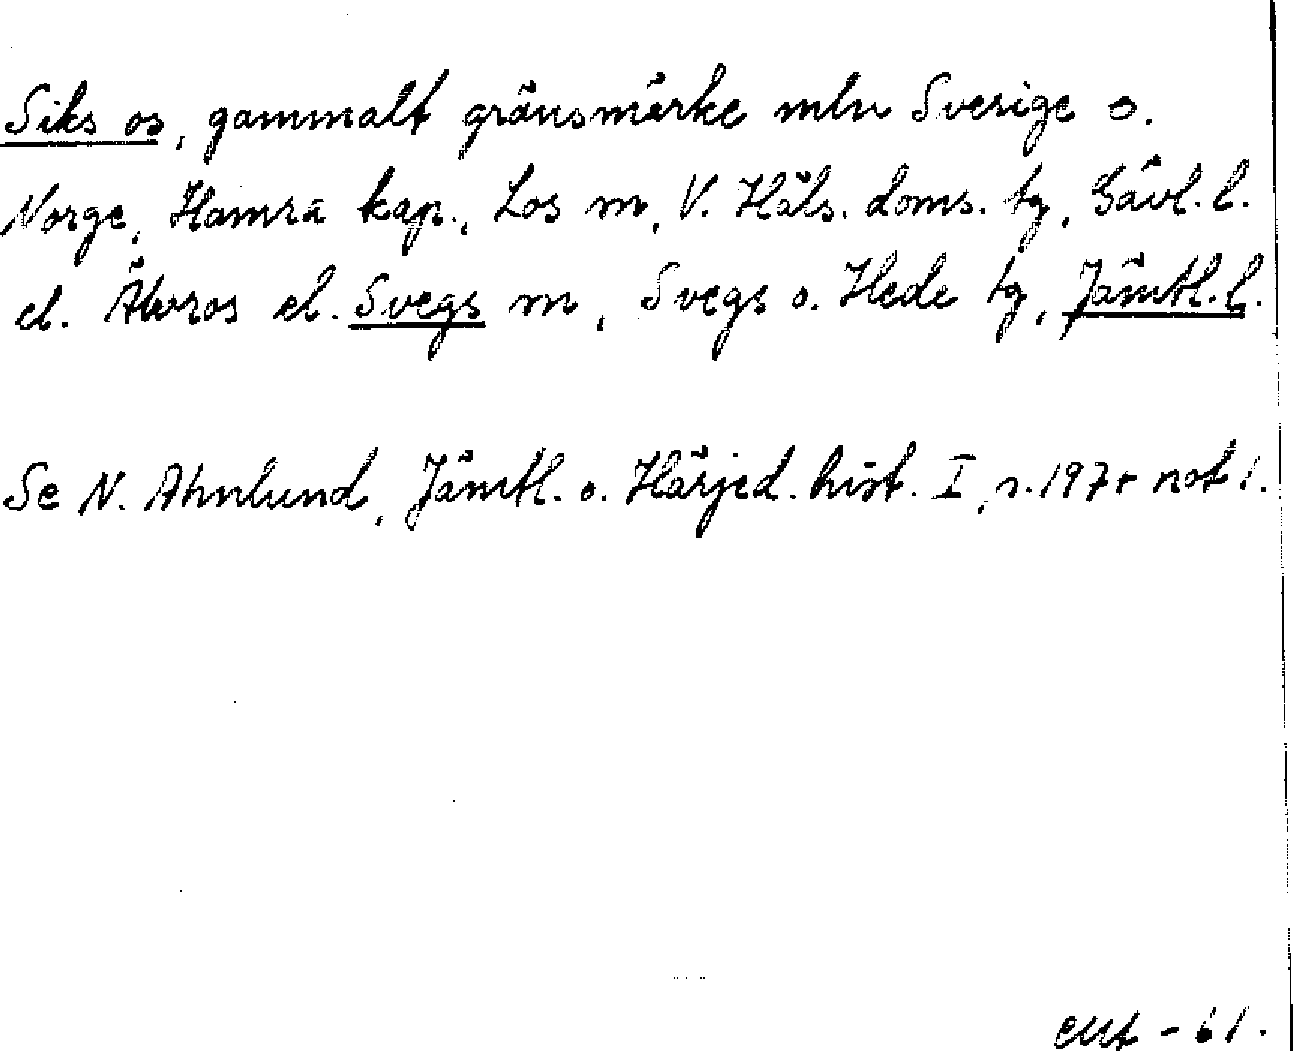 Siks os, gammalt gränsmärke mln Sverige o.
Norge, Hamra kap., Los sn, V. Häls. doms. tg, Gävl. l.
el. Älvros el. Svegs sn, Svegs o. Hede tg, Jämtl. l.
Se N. Ahnlund, Jämtl. o. Härjed. hist. I, s. 197 + not 1.
-61.